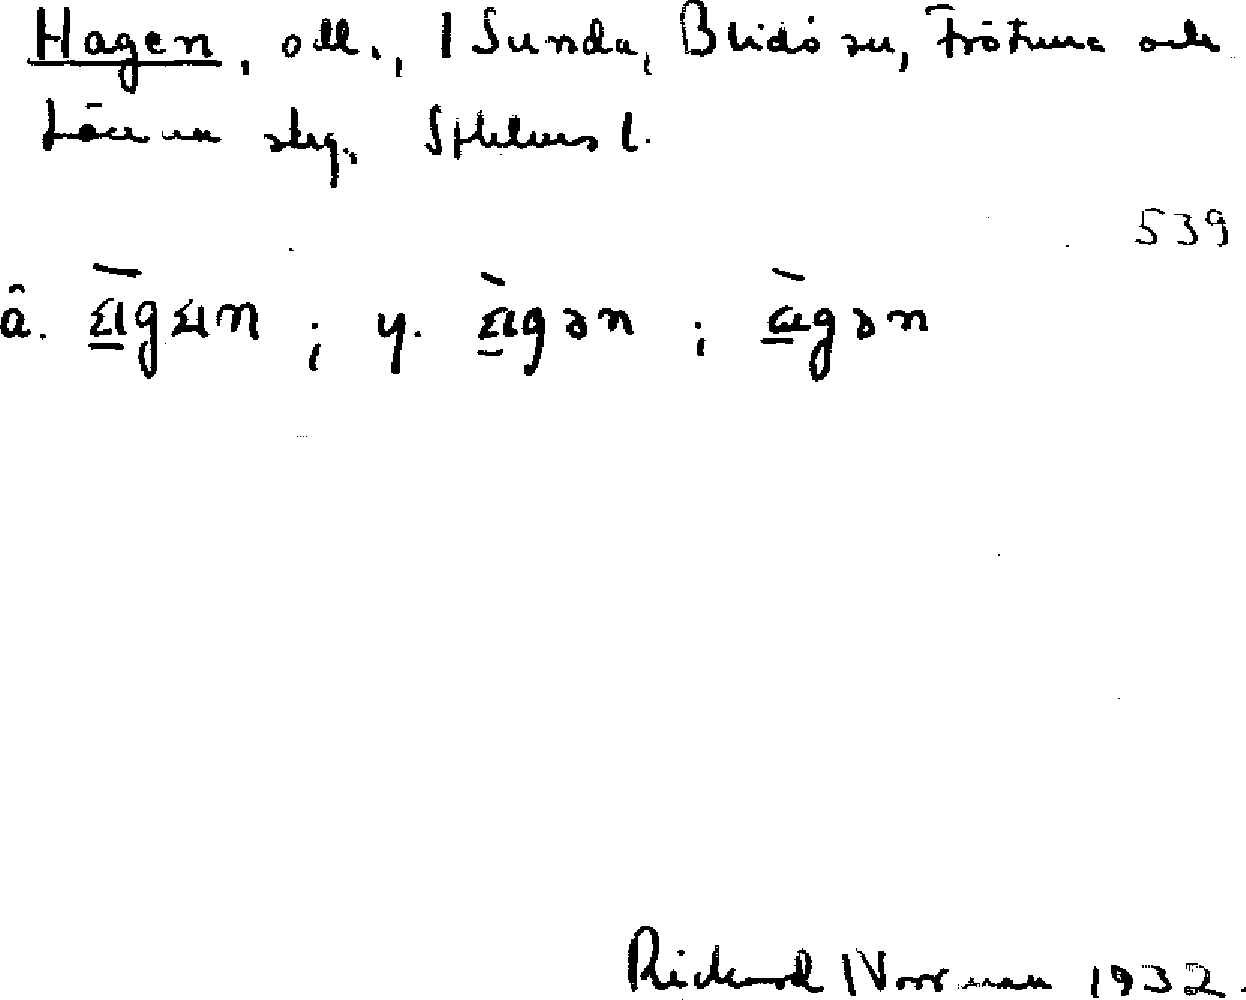 Hagen, odl., i Sunda, Blidö sn, Frötuna och
Länna skg, Sthlms l.
539
â. y.
Rickard Norrman 1932.